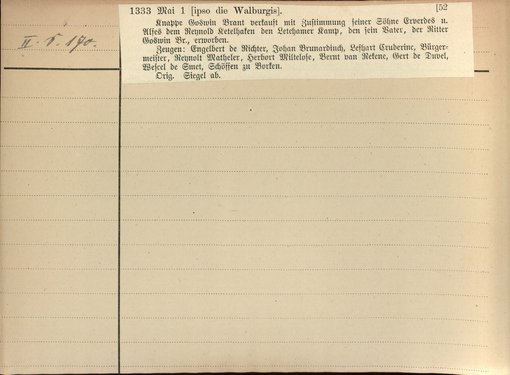 1333 Mai 1 [ipso die Walburgis]. [52
II. 5. 190.
Knappe Goswin Brant verkauft mit Zustimmung seiner Söhne Erverdes u.
Alfes dem Reynold Ketelhaken den Letehamer Kamp, den sein Vater, der Ritter
Goswin Br., erworben.
Zeugen: Engelbert de Richter, Johan Brunardinch, Leshart Cruderine, Bürger-
meister, Reynolt Matheler, Herbort Miltelose, Bernt van Rekene, Gert de Duvel,
Wescel de Smet, Schöffen zu Borken.
Orig. Siegel ab.